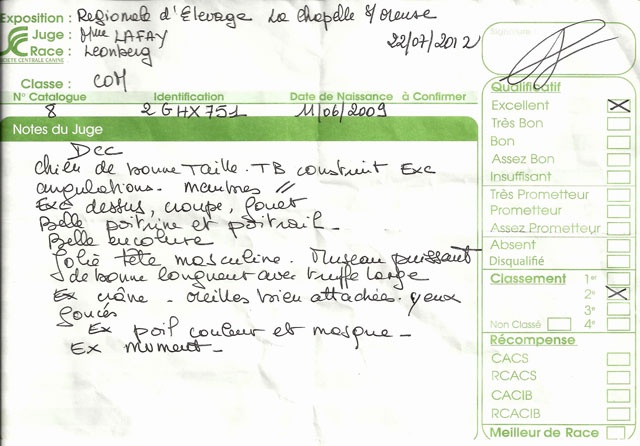 Exposition : Regionale d'Elevage La Chapelle s/oreuse
Juge : Mme LAFAY 22/07/2012
Race : Leonberg
SOCIÉTÉ CENTRALE CANINE
Classe : COM
N° Catalogue Identification Date de Naissance à Confirmer
8 2GHX751 11/06/2009
Notes du Juge
Dcc
Chien de bonne Taille. TB construit Exc
angulations. membres //
Exc dessus, croupe, fouet
Belle poitrine et poitrail.
Belle encolure
Jolie tête masculine. Museau puissant
de bonne longueur avec truffe large
Ex crâne. oreilles bien attachées. yeux
foncés
Ex poil couleur et masque.
Ex mvment.
Signature
Qualificatif
Excellent
Très Bon
Bon
Assez Bon
Insuffisant
Très Prometteur
Prometteur
Assez Prometteur
Absent
Disqualifié
Classement 1e
2e
3e
Non Classé 4e
Récompense
CACS
RCACS
CACIB
RCACIB
Meilleur de Race